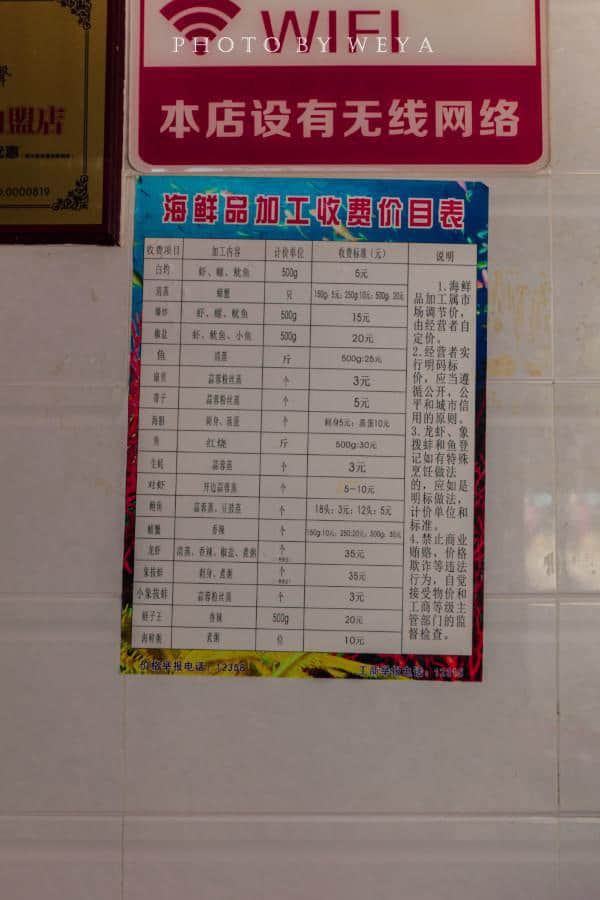 PHOTO BY WEYA
WIFI
本店设有无线网络
盟店
0.0000819
海鲜品加工收费价目表
收费项目 加工内容 计价单位 收费标准（元） 说明
白灼 虾、螺、鱿鱼 500g 5元
清蒸 螃蟹 只 150g: 5元; 250g:10元; 500g: 20元
爆炒 虾、螺、鱿鱼 500g 15元
椒盐 虾、鱿鱼、小鱼 500g 20元
鱼 清蒸 斤 500g:25元
扇贝 蒜蓉粉丝蒸 个 3元
带子 蒜蓉粉丝蒸 个 5元
海胆 刺身、蒸蛋 个 刺身5元; 蒸蛋10元
鱼 红烧 斤 500g:30元
生蚝 蒜蓉蒸 个 3元
对虾 开边蒜蓉蒸 个 5-10元
鲍鱼 蒜蓉蒸、豆豉蒸 个 18头: 3元; 12头: 5元
螃蟹 香辣 个 150g:10元; 250:20元; 500g: 30元
龙虾 清蒸、香辣、椒盐、煮粥 个 35元
象拔蚌 刺身、煮粥 个 35元
小象拔蚌 蒜蓉粉丝蒸 个 3元
虾子王 香辣 500g 20元
海鲜粥 煮粥 位 10元
1.海鲜
品加工属市
场调节价，
由经营者自
定价。
2.经营者实
行明码标
价，应当遵
循公开，公
平和城市信
用的原则。
3.龙虾、象
拨蚌和鱼登
记如有特殊
烹饪做法
的，应如是
明标做法，
计价单位和
标准。
4.禁止商业
贿赂，价格
欺诈等违法
行为，自觉
接受物价和
工商等级主
管部门的监
督检查。
价格举报电话：12358
工商举报电话：12315